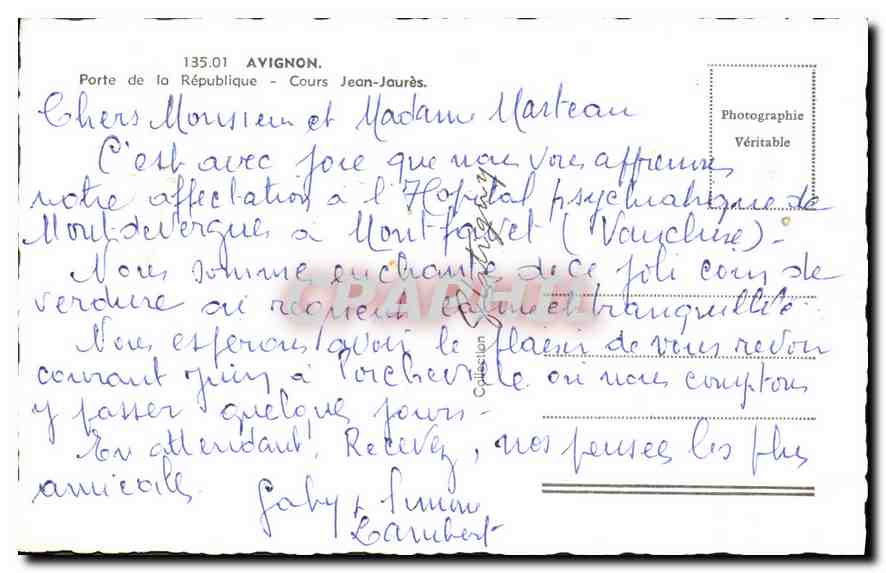 135.01 AVIGNON.
Porte de la République - Cours Jean-Jaurès.
Photographie
Véritable
Chers Monsieur et Madame Marteau
C'est avec joie que nous vous affremons
notre affectation à l'Hopital psychiatrique de
Montdevergues à Montfavet (Vaucluse) -
Nous somme enchanté de ce joli coin de
verdure ou règnent calme et tranquillité.
Nous esperons avoir le plaisir de vous revoir
courant juin à Porcheville ou nous comptons
y passer quelque jours -
En attendant! Recevez, nos pensees les plus
amicales.
Gaby + Simon
Lambert
Collection
CPAPHIL